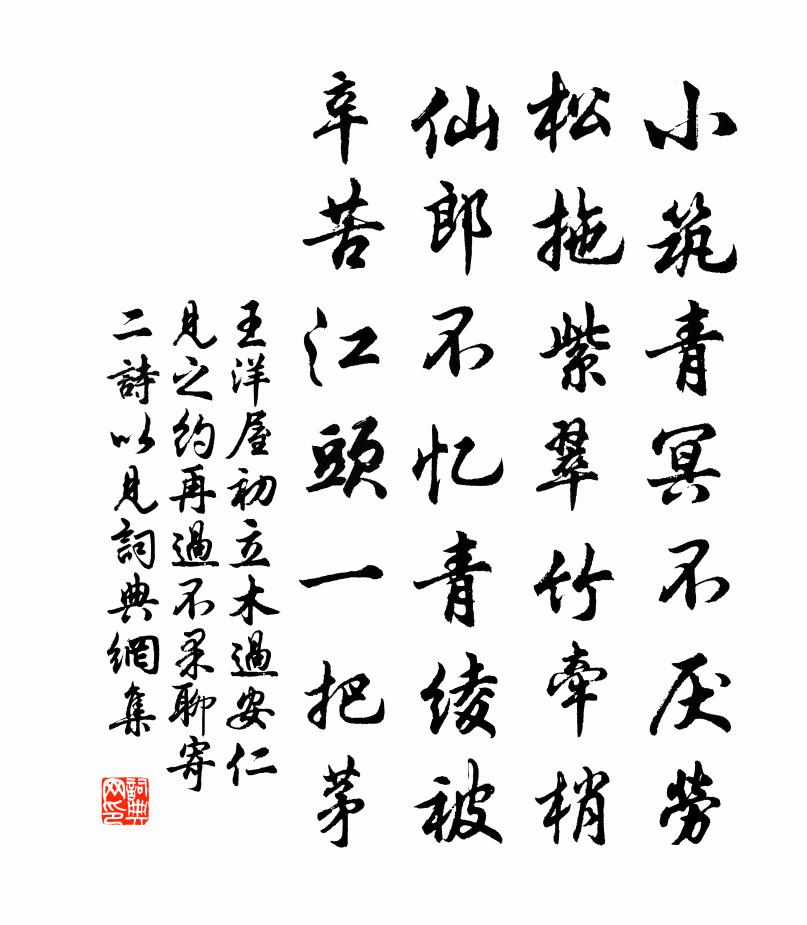 小筑青冥不厌勞
松拖紫翠竹牽梢
仙郎不忆青绫被
辛苦江頭一把茅
王洋屋初立木過安仁
見之約再過不果聊寄
二詩以見詞典網集
詞典网印